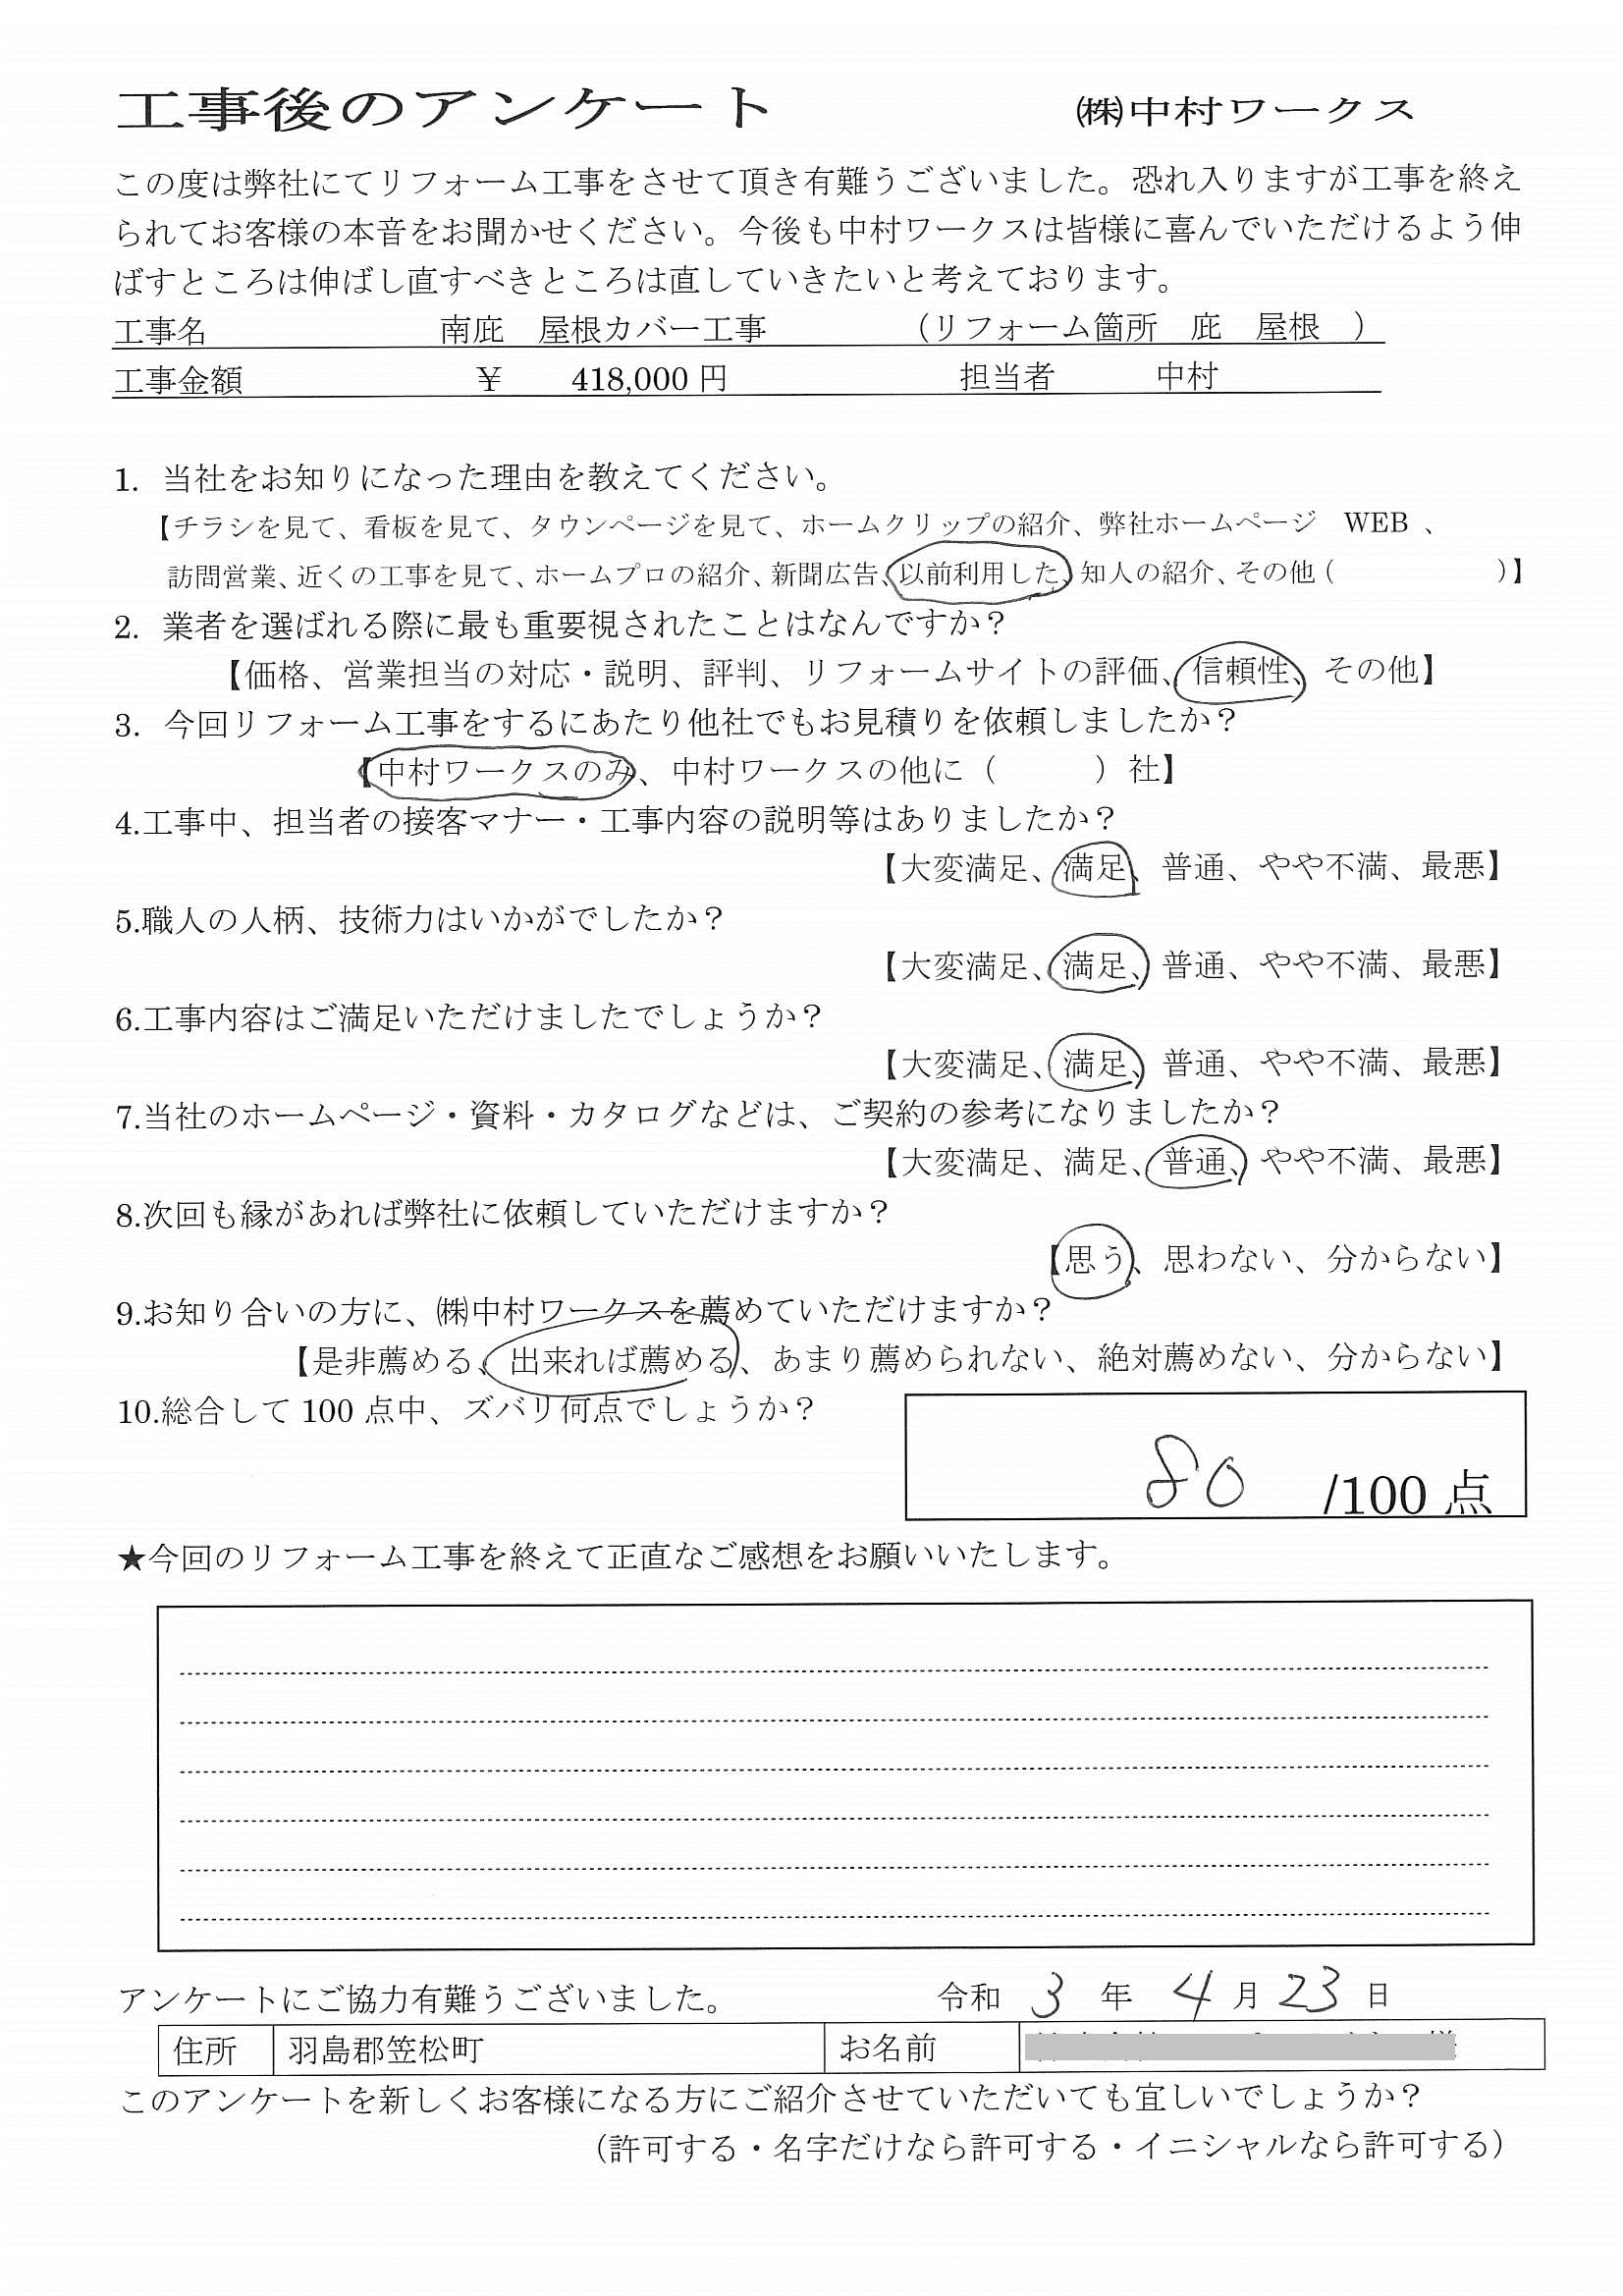 工事後のアンケート ㈱中村ワークス
この度は弊社にてリフォーム工事をさせて頂き有難うございました。恐れ入りますが工事を終え
られてお客様の本音をお聞かせください。今後も中村ワークスは皆様に喜んでいただけるよう伸
ばすところは伸ばし直すべきところは直していきたいと考えております。
工事名 南庇 屋根カバー工事 （リフォーム箇所 庇 屋根 ）
工事金額 ￥ 418,000 円 担当者 中村
1. 当社をお知りになった理由を教えてください。
【チラシを見て、看板を見て、タウンページを見て、ホームクリップの紹介、弊社ホームページ WEB 、
訪問営業、近くの工事を見て、ホームプロの紹介、新聞広告、以前利用した、知人の紹介、その他（ ）】
2. 業者を選ばれる際に最も重要視されたことはなんですか？
【価格、営業担当の対応・説明、評判、リフォームサイトの評価、信頼性、その他】
3. 今回リフォーム工事をするにあたり他社でもお見積りを依頼しましたか？
【中村ワークスのみ、中村ワークスの他に（ ）社】
4.工事中、担当者の接客マナー・工事内容の説明等はありましたか？
【大変満足、満足、普通、やや不満、最悪】
5.職人の人柄、技術力はいかがでしたか？
【大変満足、満足、普通、やや不満、最悪】
6.工事内容はご満足いただけましたでしょうか？
【大変満足、満足、普通、やや不満、最悪】
7.当社のホームページ・資料・カタログなどは、ご契約の参考になりましたか？
【大変満足、満足、普通、やや不満、最悪】
8.次回も縁があれば弊社に依頼していただけますか？
【思う、思わない、分からない】
9.お知り合いの方に、㈱中村ワークスを薦めていただけますか？
【是非薦める、出来れば薦める、あまり薦められない、絶対薦めない、分からない】
10.総合して 100 点中、ズバリ何点でしょうか？
80 /100 点
★今回のリフォーム工事を終えて正直なご感想をお願いいたします。
アンケートにご協力有難うございました。 令和 3 年 4 月 23 日
住所 羽島郡笠松町 お名前
このアンケートを新しくお客様になる方にご紹介させていただいても宜しいでしょうか？
（許可する・名字だけなら許可する・イニシャルなら許可する）